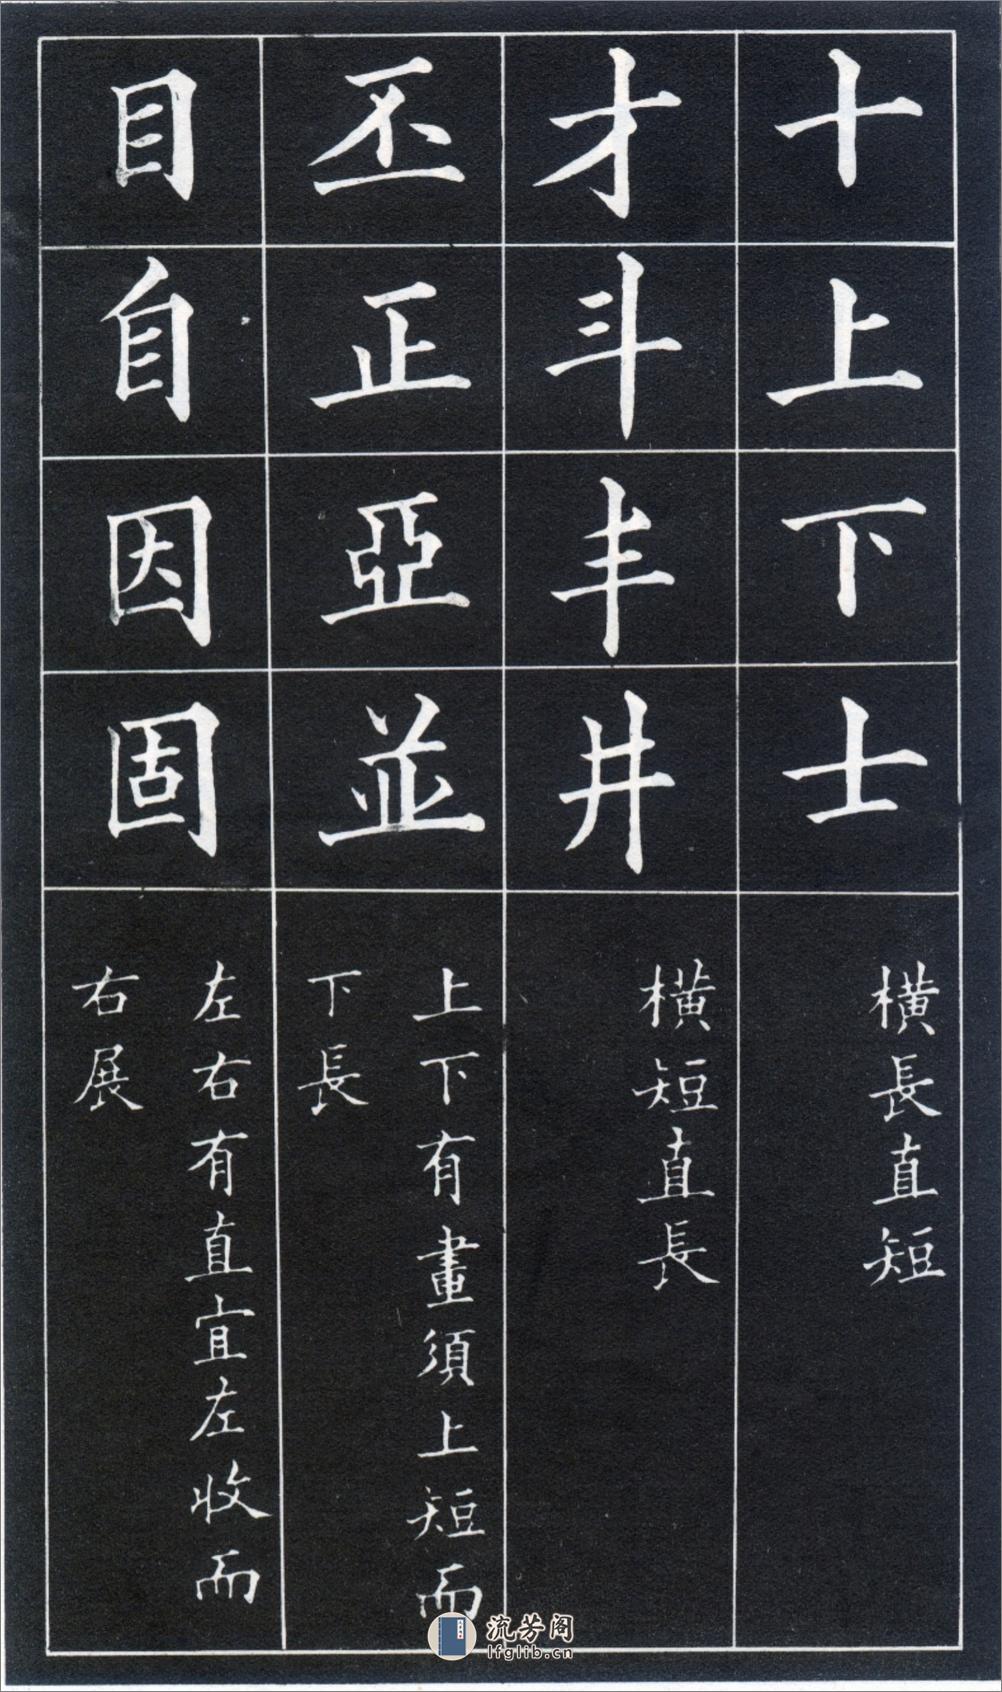 十上下士
橫長直短
才斗丰井
橫短直長
丕正亞並
上下有畫須上短而
下長
目自因固
左右有直宜左收而
右展
流芳阁
lfglib.cn